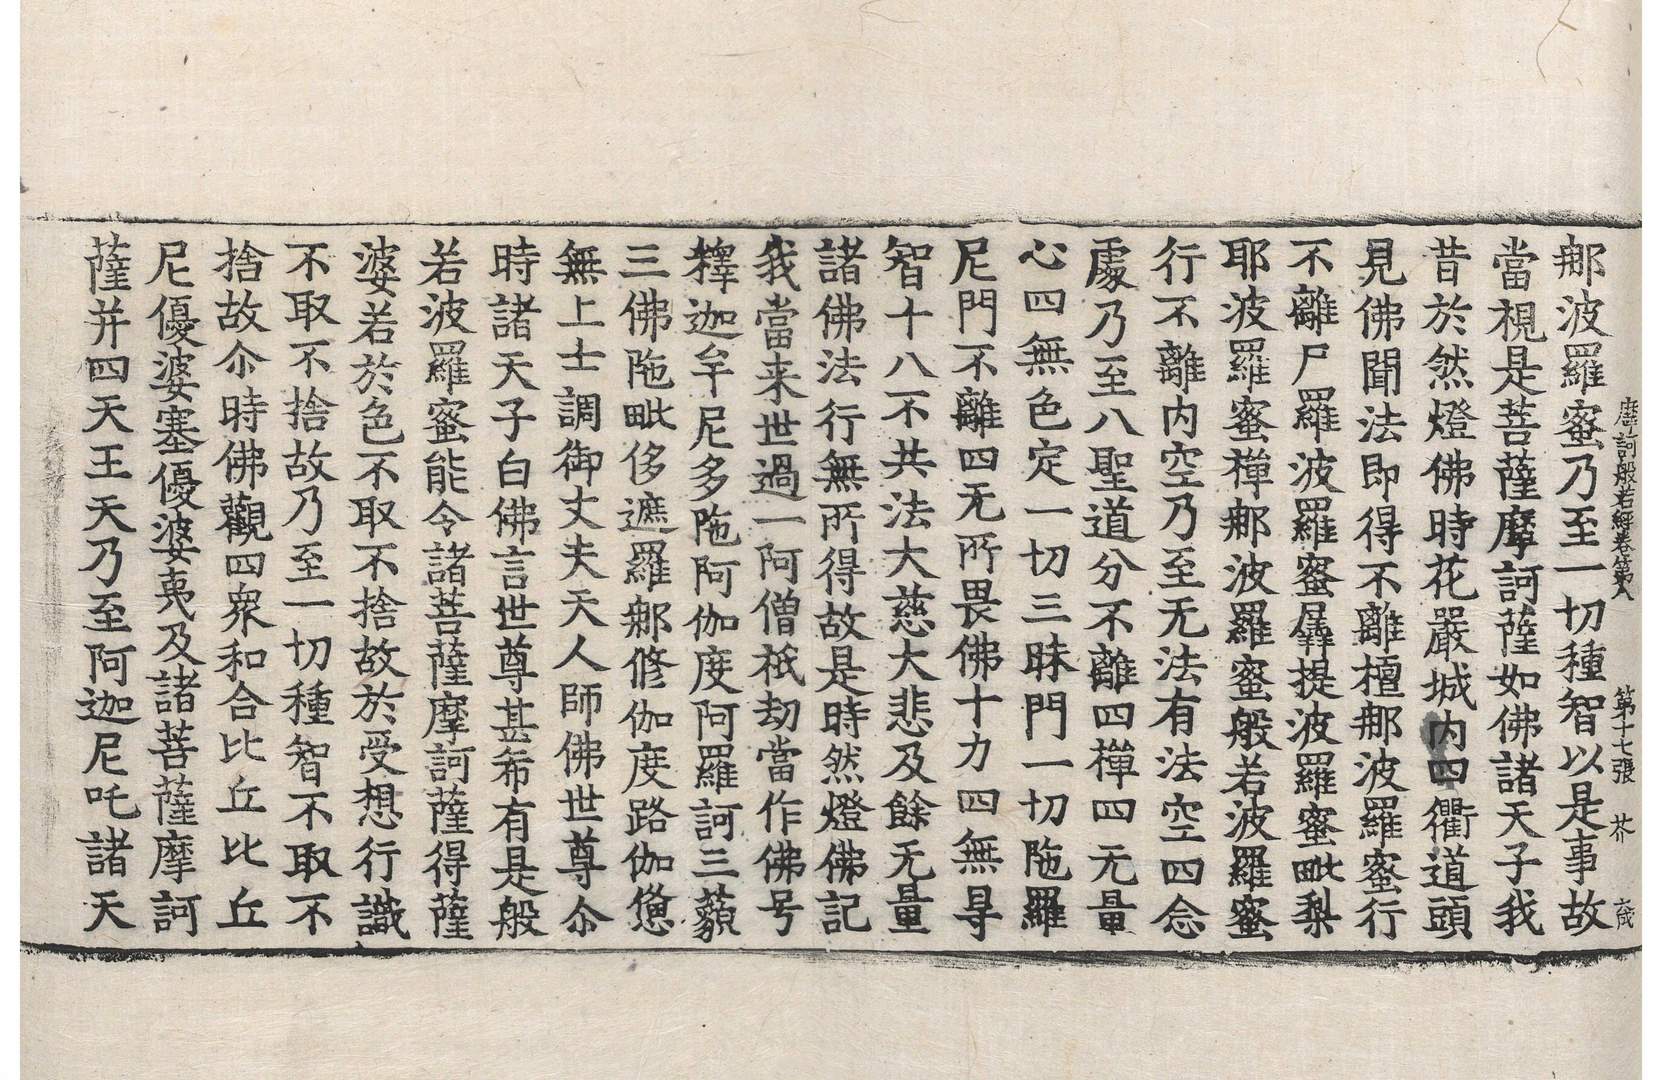 摩訶般若經卷第八　第十七張　芥
𨚗波羅蜜乃至一切種智以是事故
當視是菩薩摩訶薩如佛諸天子我
昔於然燈佛時花嚴城内四衢道頭
見佛聞法即得不離檀𨚗波羅蜜行
不離尸羅波羅蜜羼提波羅蜜毗梨
耶波羅蜜禪𨚗波羅蜜般若波羅蜜
行不離内空乃至无法有法空四念
處乃至八聖道分不離四禪四无量
心四無色定一切三昧門一切陁羅
尼門不離四无所畏佛十力四無㝵
智十八不共法大慈大悲及餘无量
諸佛法行無所得故是時然燈佛記
我當来世過一阿僧祇劫當作佛号
釋迦牟尼多陁阿伽度阿羅訶三藐
三佛陁毗侈遮羅𨚗修伽度路伽憊
無上士調御丈夫天人師佛世尊尒
時諸天子白佛言世尊甚希有是般
若波羅蜜能令諸菩薩摩訶薩得薩
婆若於色不取不捨故於受想行識
不取不捨故乃至一切種智不取不
捨故尒時佛觀四衆和合比丘比丘
尼優婆塞優婆夷及諸菩薩摩訶
薩并四天王天乃至阿迦尼吒諸天